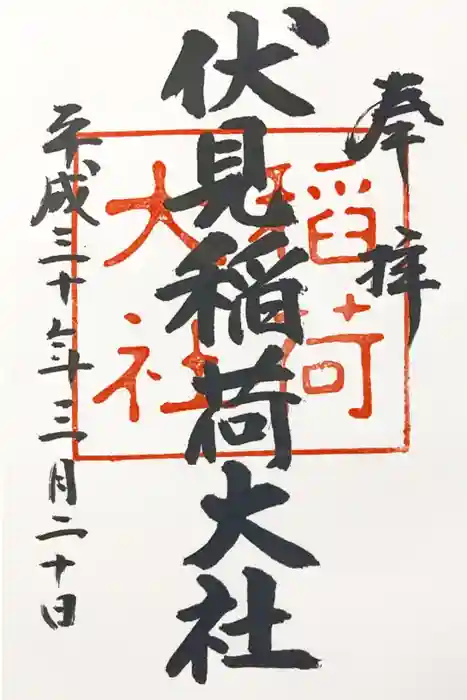 奉拝
伏見稲荷大社
平成三十年三月二十日
稲荷
大社